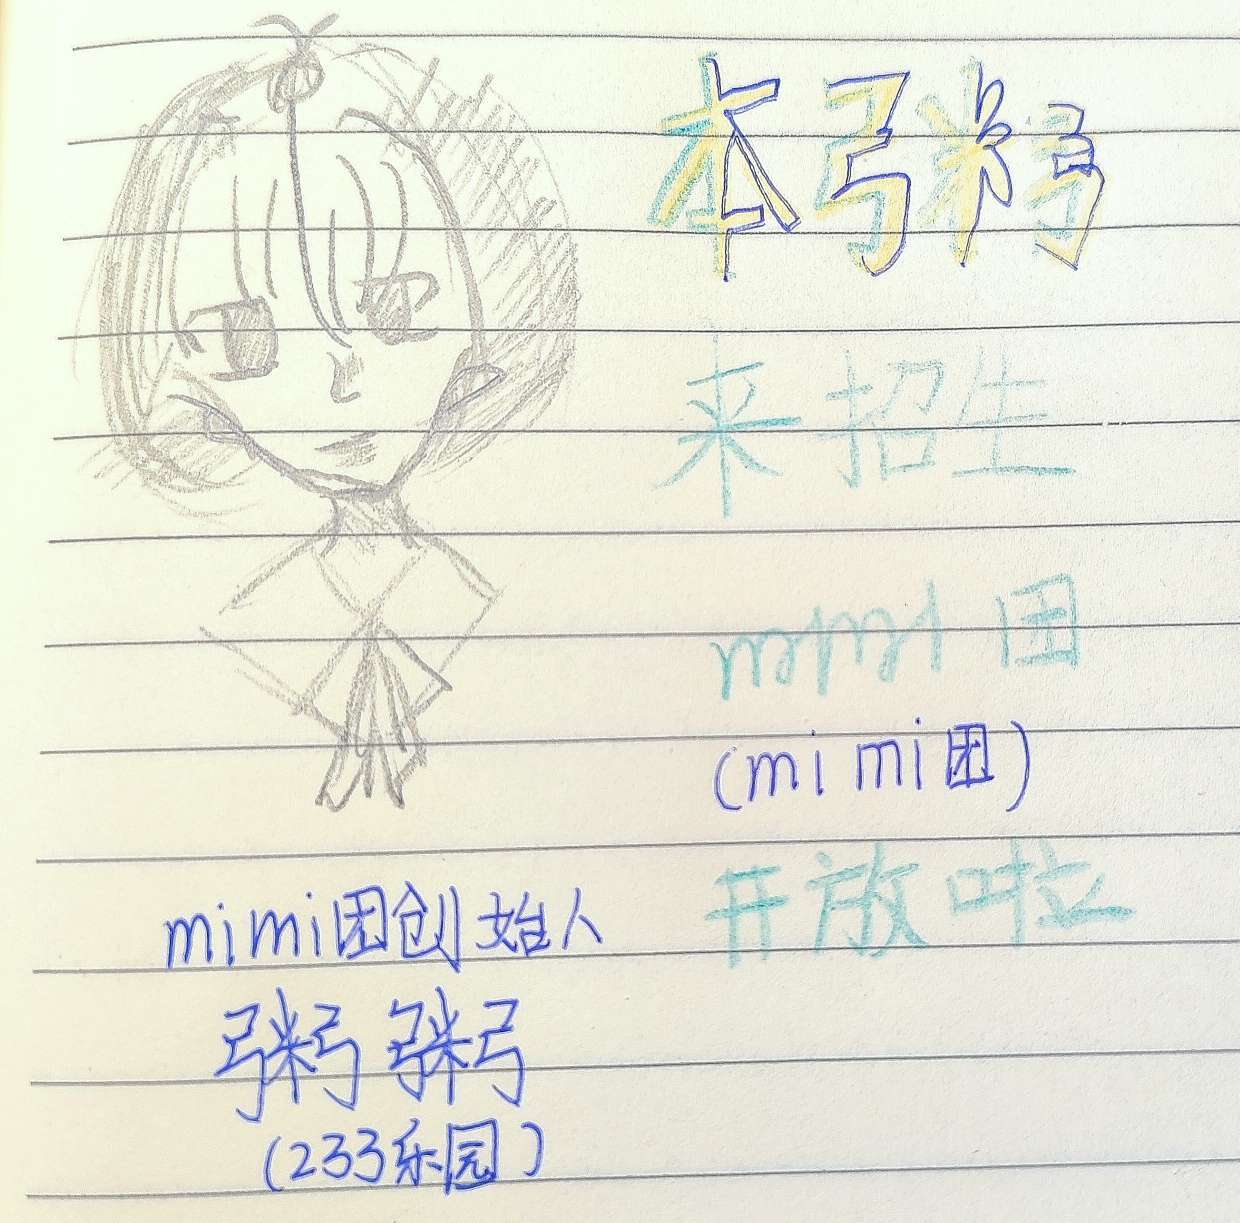 本粥
来招生
mimi团
(mimi团)
开放啦
mimi团创始人
粥粥
(233乐园)